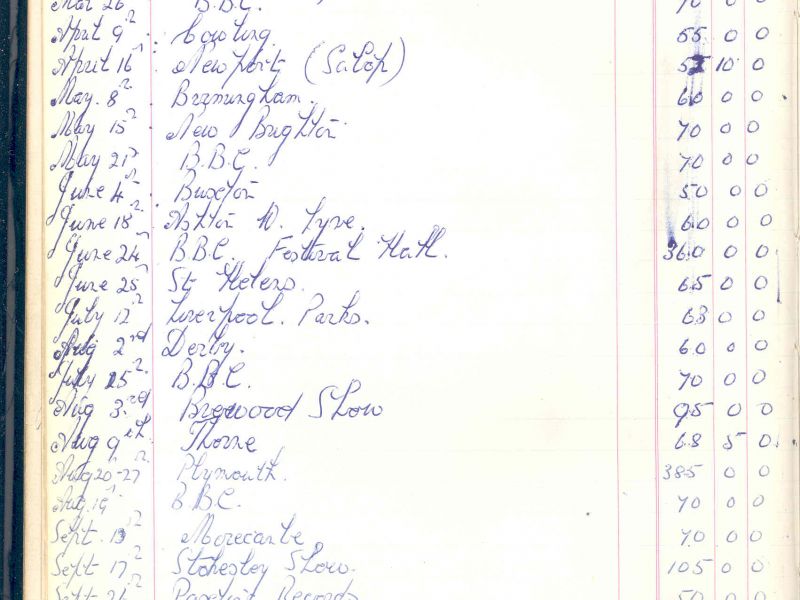 Mar 26 B.B.C. 70 0 0
April 9th Cowling 55 0 0
April 16th Newport (Salop) 52 10 0
May 8th Birmingham. 60 0 0
May 15th New Brighton 70 0 0
May 21st B.B.C. 70 0 0
June 4th Buxton 50 0 0
June 18th Ashton U. Lyne. 60 0 0
June 24th B.B.C. Festival Hall. 360 0 0
June 25th St Helens. 65 0 0
July 12th Liverpool. Parks. 68 0 0
Aug 2nd Derby. 60 0 0
July 25th B.B.C. 70 0 0
Aug 3rd Brewood Show 95 0 0
Aug 9th Thorne 68 5 0
Aug 20-27th Plymouth. 385 0 0
Aug. 19th B.B.C. 70 0 0
Sept. 13th Morecambe 70 0 0
Sept 17th Stokesley Show. 105 0 0
Sept 26 Records 50 0 0